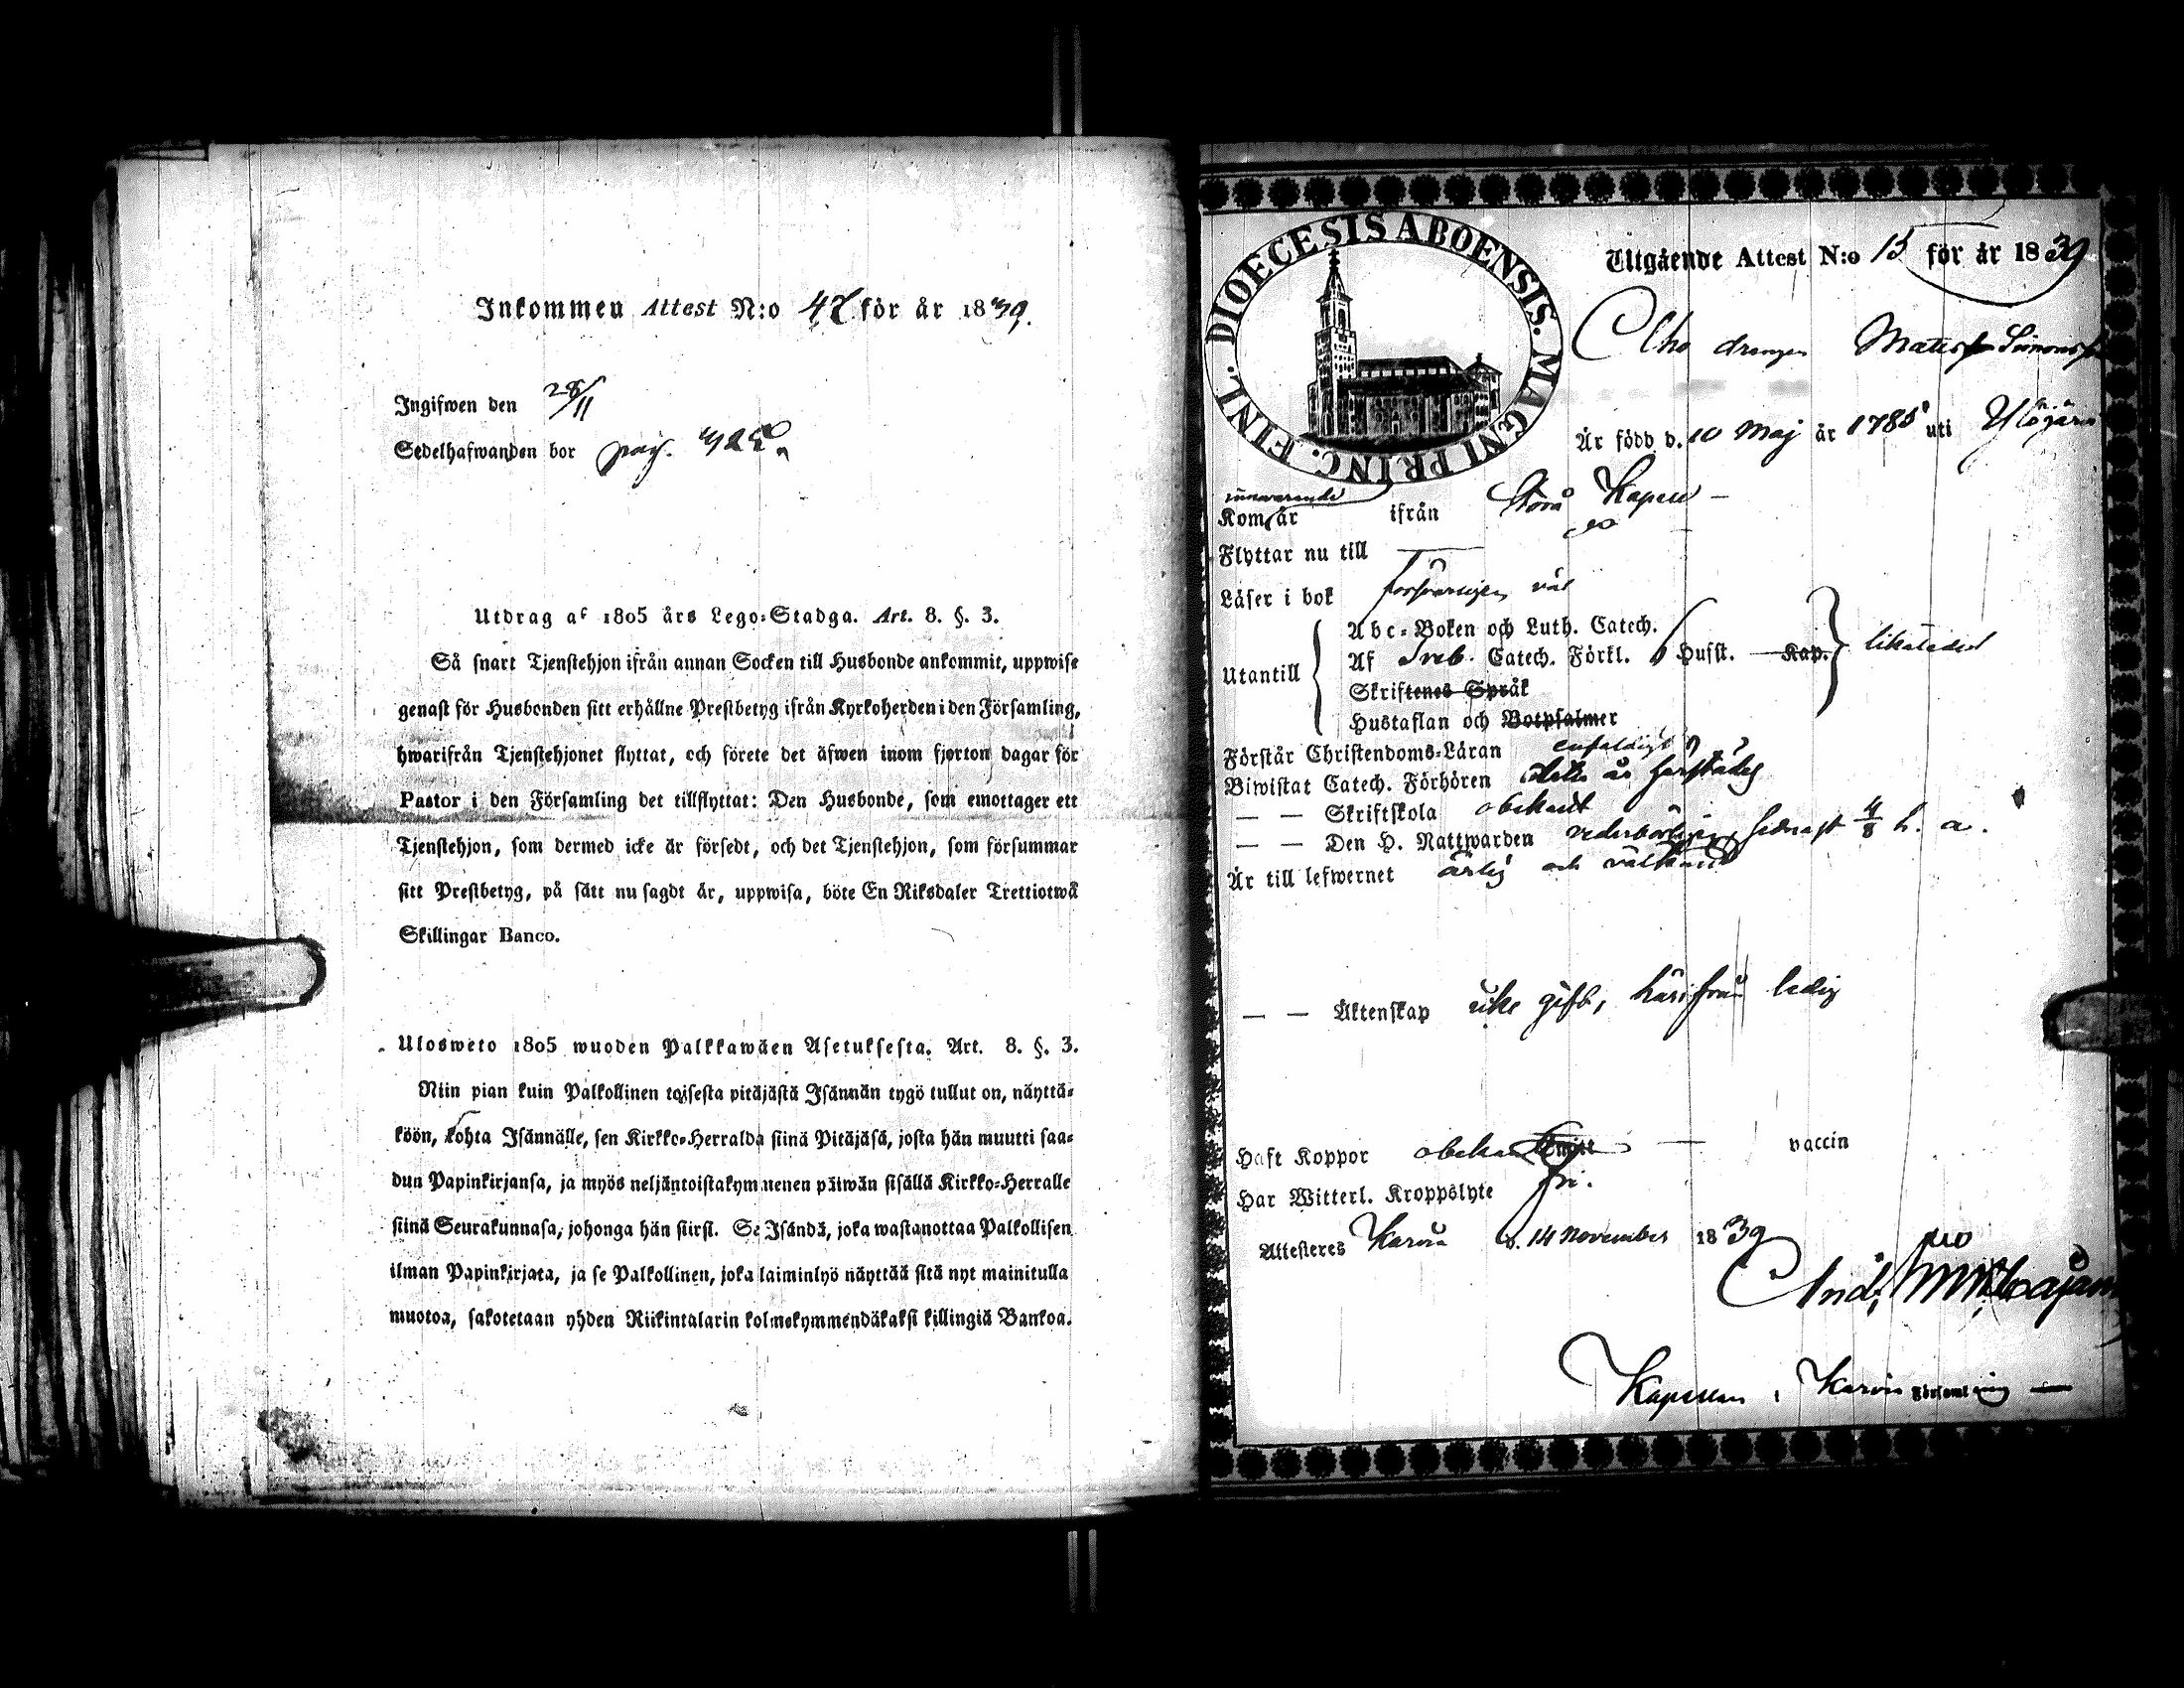 Inkommen Attest N:o 47 för år 1839.
Ingifwen den 28/11
Sedelhafwanden bor pag.
Utdrag af 1805 års Lego-Stadga. Art. 8. §. 3.
Så snart Tjenstehjon ifrån annan Socken till Husbonde ankommit, uppwise
genast för Husbonden sitt erhållne Prestbetyg ifrån Kyrkoherden i den Församling,
hwarifrån Tjenstehjonet flyttat, och förete det äfwen inom fjorton dagar för
Pastor i den Församling det tillflyttat: Den Husbonde, som emottager ett
Tjenstehjon, som dermed icke är försedt, och det Tjenstehjon, som försummar
sitt Prestbetyg, på sätt nu sagdt är, uppwisa, böte En Riksdaler Trettiotwå
Skillingar Banco.
Ulosweto 1805 wuoden Palkkawäen Asetuksesta. Art. 8. §. 3.
Niin pian kuin Palkollinen toisesta pitäjästä Isännän tygö tullut on, näyttä-
köön, kohta Isännälle, sen Kirkko-Herralda siinä Pitäjäsä, josta hän muutti saa-
dun Papinkirjansa, ja myös neljäntoistakymmenen päiwän sisällä Kirkko-Herralle
siinä Seurakunnasa, johonga hän siirsi. Se Isändä, joka wastanottaa Palkollisen
ilman Papinkirjata, ja se Palkollinen, joka laiminlyö näyttää sitä nyt mainitulla
muotoa, sakotetaan yhden Riikintalarin kolmekymmendäkaksi killingiä Bankoa.
DIOECESIS ABOENSIS. MAGNI PRINC. FINL.
Utgående Attest N:o 15 för år 1839
drengen Matts Simonss
Är född d. 10 Maj år 1785 uti Ylöjärvi
innevarande
Kom år ifrån Storå Kapell
Flyttar nu till
Läser i bok försvarligen väl
Abc-Boken och Luth. Catech.
Utantill Af Sveb. Catech. Förkl. Husst. Kap. likaledes
Skriftenes Språk
Hustaflan och Botpsalmer
Förstår Christendoms-Läran enfaldigt
Biwistat Catech. Förhören
— — Skriftskola obekant
— — Den H. Nattwarden vederbörligen, senast 4/8 h. a.
Är till lefwernet ärlig och välkänd
— — Äktenskap icke gift, härifrån ledig
Haft Koppor obekant vaccin
Har Witterl. Kroppslyte fri.
Attesteres Karvia d. 14 November 1839
Kapellan i Karvia Församling